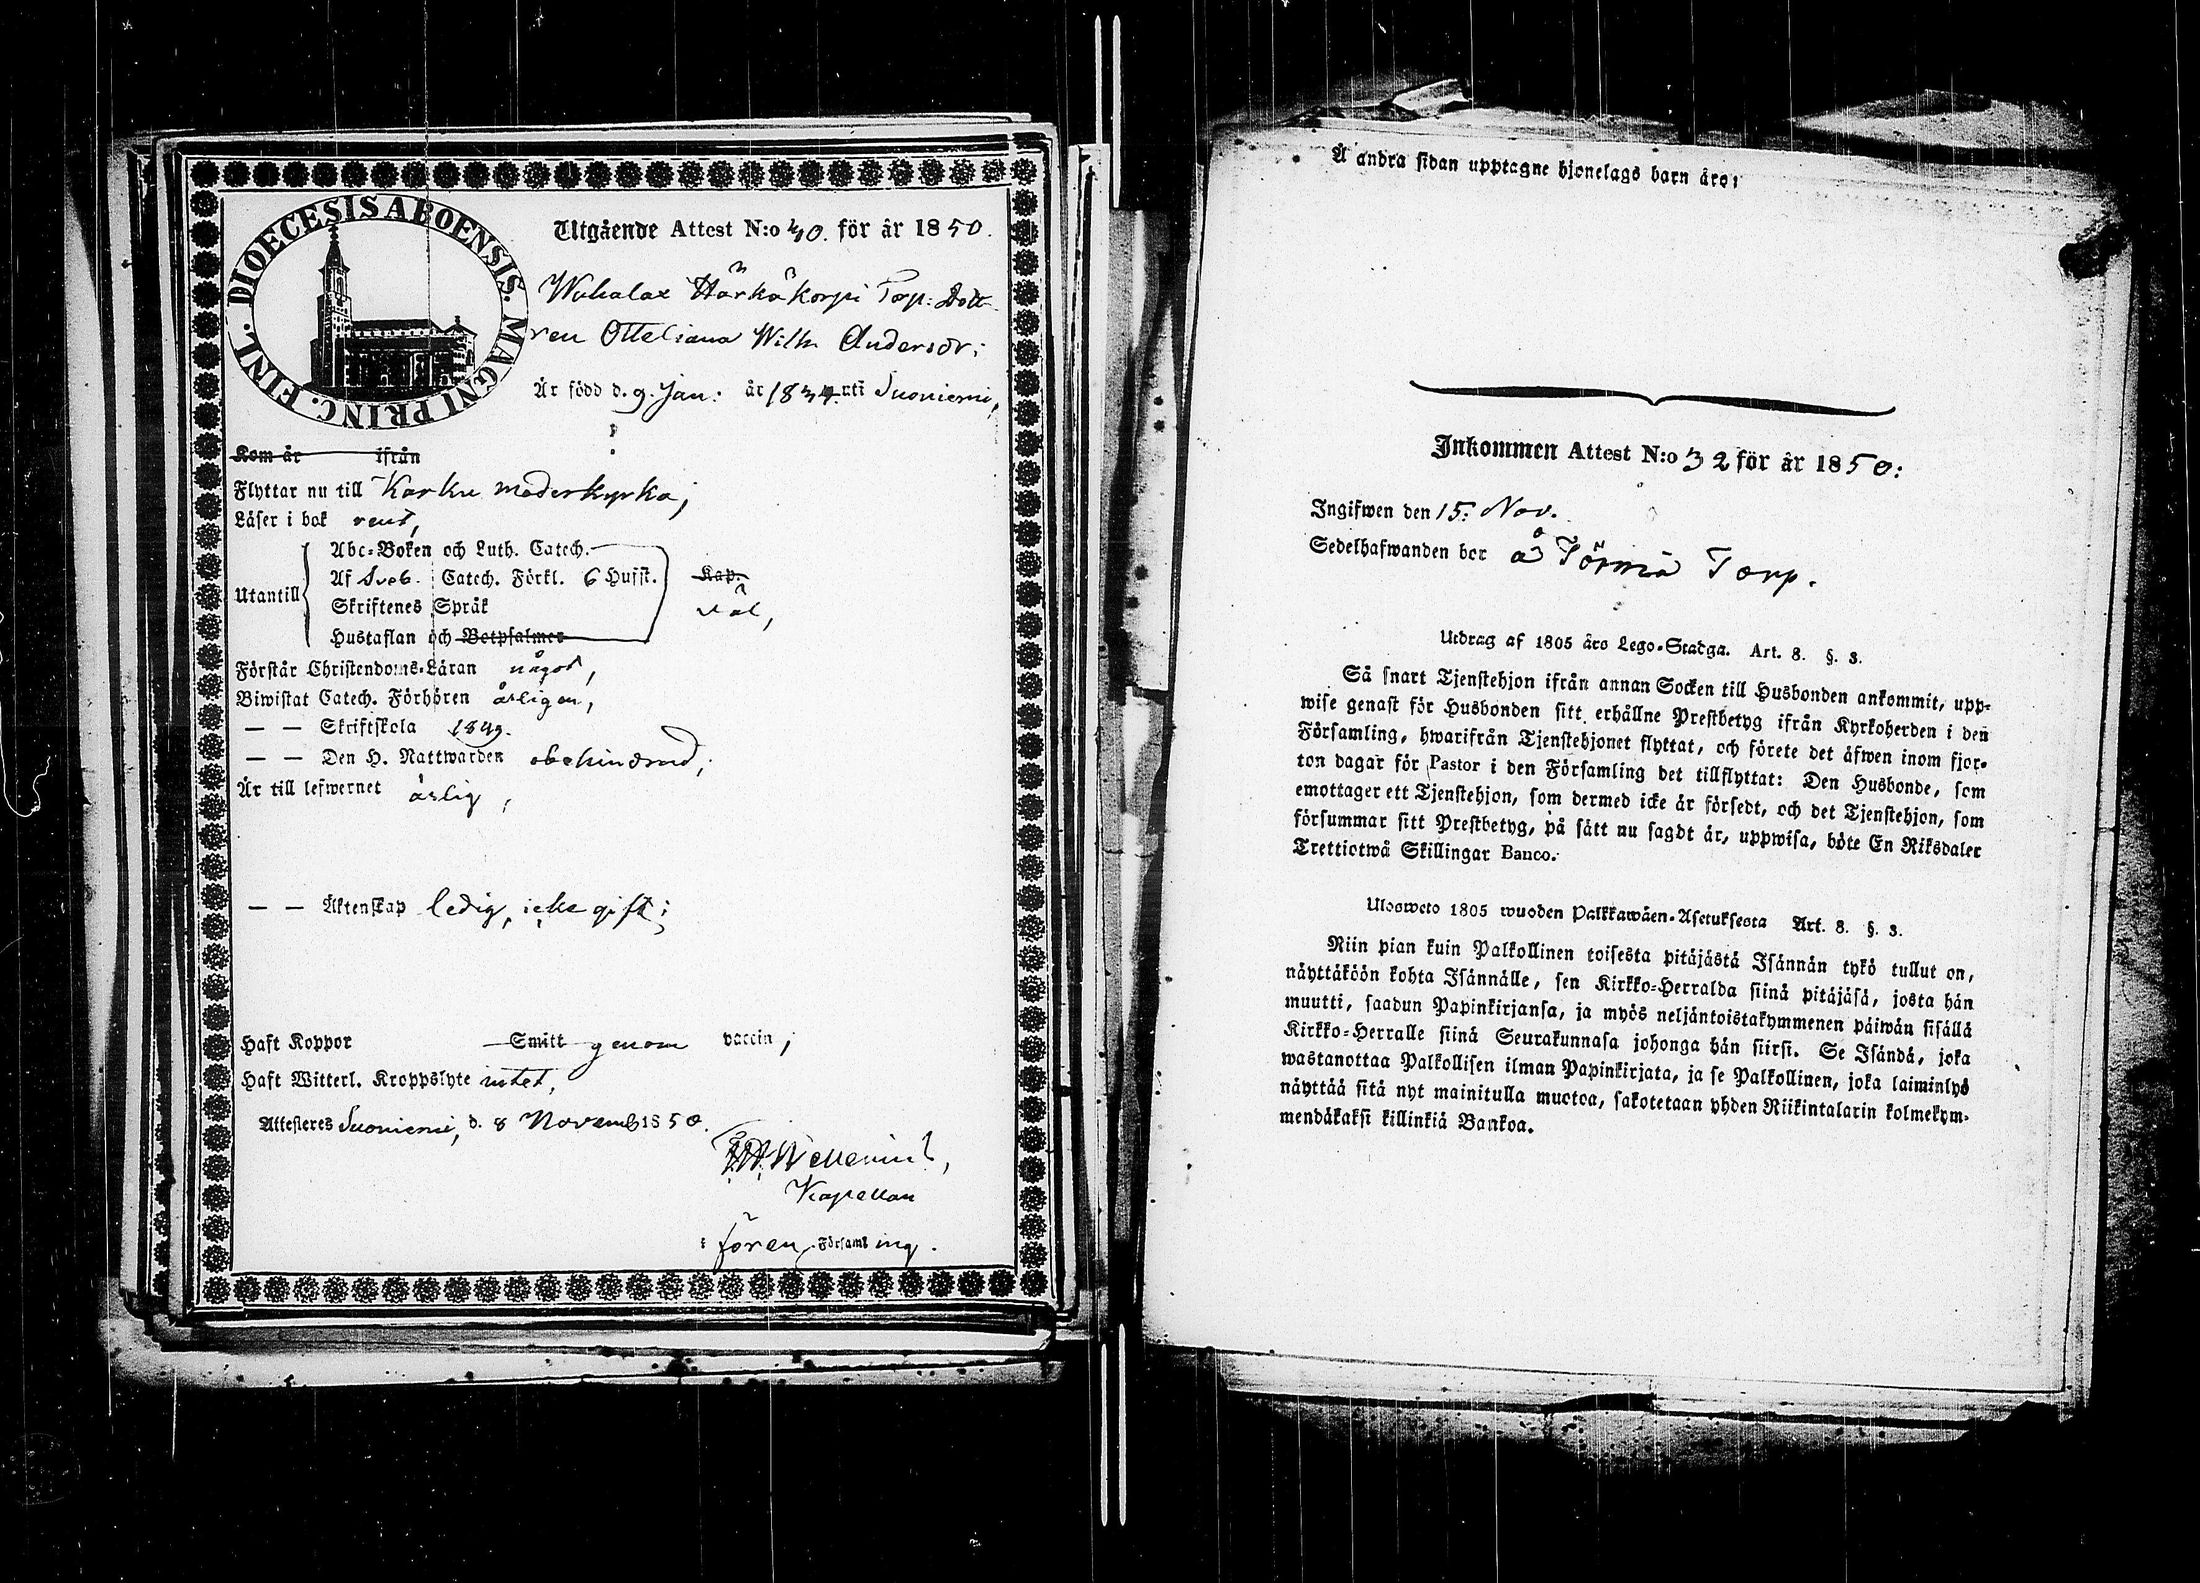 DIOECESIS ABOENSIS. MAGNI PRINC. FINL.
Utgående Attest N:o 40. för år 1850.
Wahalax Härkäkorpi Torp: Dott
ren Otteliana Wilh. Andersdr;
Är född d. 9. Jan: år 1834. uti Suoniemi,
Kom år ifrån
Flyttar nu till Karku moderkyrka;
Läser i bok rent,
Utantill
Abc-Boken och Luth. Catech.
Af Sveb. Catech. Förkl. 6 Hufst. Kap.
Skriftenes Språk väl,
Hustaflan och Botpsalmer
Förstår Christendoms-Läran något,
Biwistat Catech. Förhören årligen,
— — Skriftskola 1849.
— — Den H. Nattwarden obehindrad;
Är till lefwernet ärlig,
— — Äktenskap ledig, icke gift;
Haft Koppor Smitt genom vaccin;
Haft Witterl. Kroppslyte intet,
Attesteres Suoniemi, d. 8 Novemb 1850.
Wellenius,
Kapellan
i fören. Församling.
Å andra sidan upptagne hjonelags barn äro:
Inkommen Attest N:o 32 för år 1850:
Ingifwen den 15. Nov.
Sedelhafwanden bor å Törmä Torp.
Utdrag af 1805 års Lego-Stadga. Art. 8. §. 3.
Så snart Tjenstehjon ifrån annan Socken till Husbonden ankommit, upp-
wise genast för Husbonden sitt erhållne Prestbetyg ifrån Kyrkoherden i den
Församling, hwarifrån Tjenstehjonet flyttat, och förete det äfwen inom fjor-
ton dagar för Pastor i den Församling det tillflyttat: Den Husbonde, som
emottager ett Tjenstehjon, som dermed icke är försedt, och det Tjenstehjon, som
försummar sitt Prestbetyg, på sätt nu sagdt är, uppwisa, böte En Riksdaler
Trettiotwå Skillingar Banco.
Ulosweto 1805 wuoden Palkkawäen-Asetuksesta Art. 8. §. 3.
Niin pian kuin Palkollinen toisesta pitäjästä Isännän tykö tullut on,
näyttäköön kohta Isännälle, sen Kirkko-Herralda siinä pitäjäsä, josta hän
muutti, saadun Papinkirjansa, ja myös neljäntoistakymmenen päiwän sisällä
Kirkko-Herralle siinä Seurakunnasa johonga hän siirsi. Se Isändä, joka
wastanottaa Palkollisen ilman Papinkirjata, ja se Palkollinen, joka laiminlyö
näyttää sitä nyt mainitulla muotoa, sakotetaan yhden Riikintalarin kolmekym-
mendäkaksi killinkiä Bankoa.